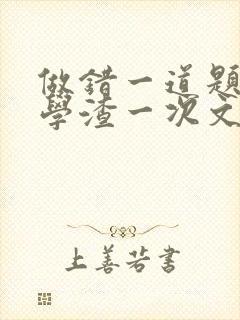 做錯一道題
學渣一次文
上善若書